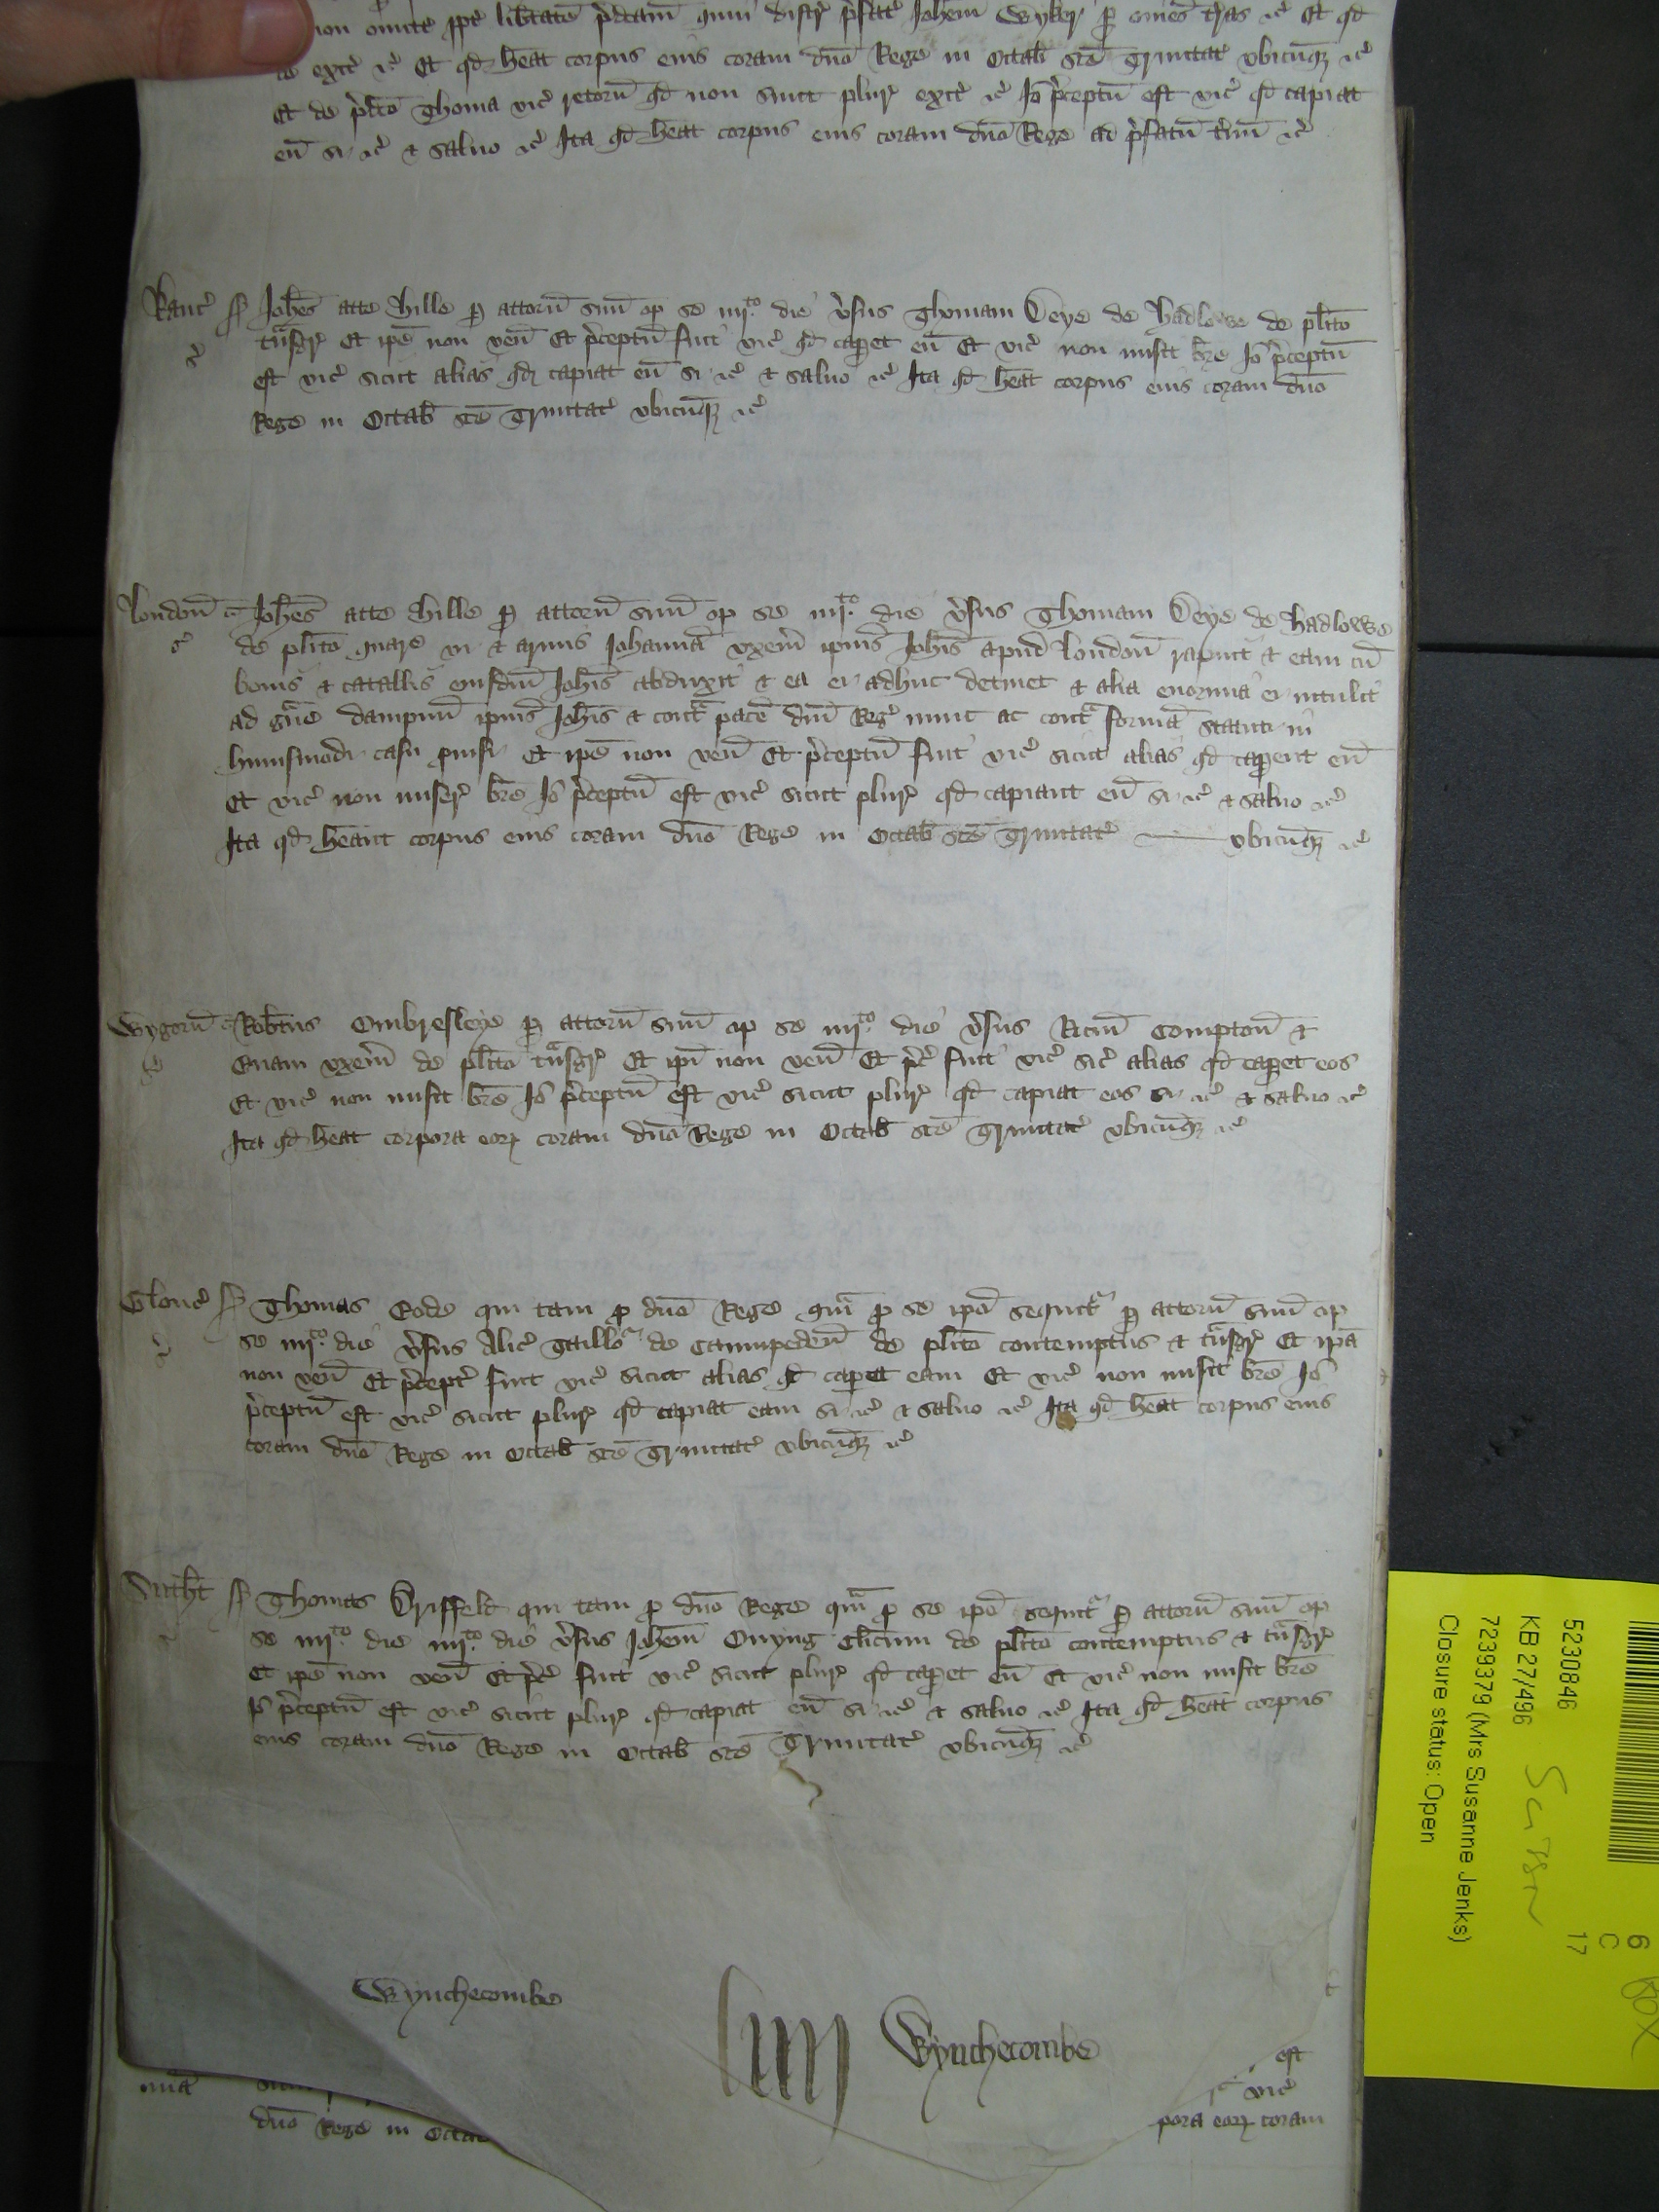 non omitt ipt lib̄tatē p̄dc̄am quin distr̄ p̄fat Joh̄em Wyker p̄ om̄es t̄ras ⁊c̄ Et qd̄
de exit ⁊c̄ Et qd̄ h̄eat corpus eius coram dn̄o Rege in Octab̄ sc̄e Trinitat̄ vbicūq̄ ⁊c̄
Et de p̄dc̄o Thoma vic̄ retorn̄ qd̄ non sunt plur̄ exit̄ ⁊c̄ Jō p̄ceptū est vic̄ qd̄ capiat
eū si ⁊c̄ ⁊ saluo ⁊c̄ Ita qd̄ h̄eat corpus eius coram dn̄o Rege ad p̄fatū t̄mū ⁊c̄
Kanc̄ Joh̄es atte Hille p̄ attorn̄ suū op̄ se iiijto die v̄sus Thomam Deye de Hadlowe de plīto
tn̄sgr̄ Et ip̄e non ven̄ Et p̄ceptū fuit vic̄ qd̄ cap̄et eū Et vic̄ non misit br̄e Jō p̄ceptū
est vic̄ sicut alias qd̄ capiat eū si ⁊c̄ ⁊ saluo ⁊c̄ Ita qd̄ h̄eat corpus eius coram dn̄o
Rege in Octab̄ sc̄e Trinitat̄ vbicūq̄ ⁊c̄
London̄ Joh̄es atte Hille p̄ attorn̄ suū op̄ se iiijto die v̄sus Thomam Deye de Hadlowe
de plīto quare vi ⁊ armis Johannā vxem̄ ipius Joh̄is apud London̄ rapuit ⁊ eam cū
bonis ⁊ catallis eiusdm̄ Joh̄is abduxit ⁊ ea ei adhuc detinet ⁊ alia enormia ei intulit
ad g̃ue dampnū ipius Joh̄is ⁊ contā pacē dn̄i Reḡ nunc ac contā formā statuti in
huiusmodi casu puisi Et ip̄e non ven̄ Et p̄ceptū fuit vic̄ sicut alias qd̄ cap̄ent eū
Et vic̄ non miser̄ br̄e Jō p̄ceptū est vic̄ sicut plur̄ qd̄ capiant eū si ⁊c̄ ⁊ saluo ⁊c̄
Ita qd̄ h̄eant corpus eius coram dn̄o Rege in Octab̄ sc̄e Trinitat̄ vbicūq̄ ⁊c̄
Wygorn̄ Rob̄tus Ombresleye p̄ attorn̄ suū op̄ se iiijto die v̄sus Ricm̄ Compton̄ ⁊
Euam vxem̄ de plīto tn̄sgr̄ Et ip̄i non ven̄ Et p̄c̄ fuit vic̄ sic̄ alias qd̄ cap̄et eos
Et vic̄ non misit br̄e Jō p̄ceptū est vic̄ sicut plur̄ qd̄ capiat eos si ⁊c̄ ⁊ saluo ⁊c̄
Ita qd̄ h̄eat corpora eorꝝ coram dn̄o Rege in Octab̄ sc̄e Trinitat̄ vbicūq̄ ⁊c̄
Glouc̄ Thomas Code qui tam p̄ dn̄o Rege qm̄ p̄ se ip̄o sequit p̄ attorn̄ suū op̄
se iiijto die v̄sus Alic̄ Taillo de Caumpeden̄ de plīto contemptus ⁊ tn̄sgr̄ Et ip̄a
non ven̄ Et p̄cept̄ fuit vic̄ sicut alias qd̄ cap̄et eam Et vic̄ non misit br̄e Jō
p̄ceptū est vic̄ sicut plur̄ qd̄ capiat eam si ⁊c̄ ⁊ saluo ⁊c̄ Ita qd̄ h̄eat corpus eius
coram dn̄o Rege in Octab̄ sc̄e Trinitat̄ vbicūq̄ ⁊c̄
Sutht̄ Thomas Driffeld qui tam p̄ dn̄o Rege qm̄ p̄ se ip̄o sequit p̄ attorn̄ suū op̄
se iiijto die iiijto die v̄sus Joh̄em Onyng cl̄icum de plīto contemptus ⁊ tn̄sgr̄
Et ip̄e non ven̄ Et p̄c̄ fuit vic̄ sicut plur̄ qd̄ cap̄et eū Et vic̄ non misit br̄e
Jō p̄ceptū est vic̄ sicut plur̄ qd̄ capiat eū si ⁊c̄ ⁊ saluo ⁊c̄ Ita qd̄ h̄eat corpus
eius coram dn̄o Rege in Octab̄ sc̄e Trinitat̄ vbicūq̄ ⁊c̄
Wynchecombe
Wynchecombe
est
vic̄
dn̄o Rege in Octab
pora eorꝝ coram
5230846
KB 27/496
7239379 (Mrs Susanne Jenks)
Closure status: Open
6
C
17
Box